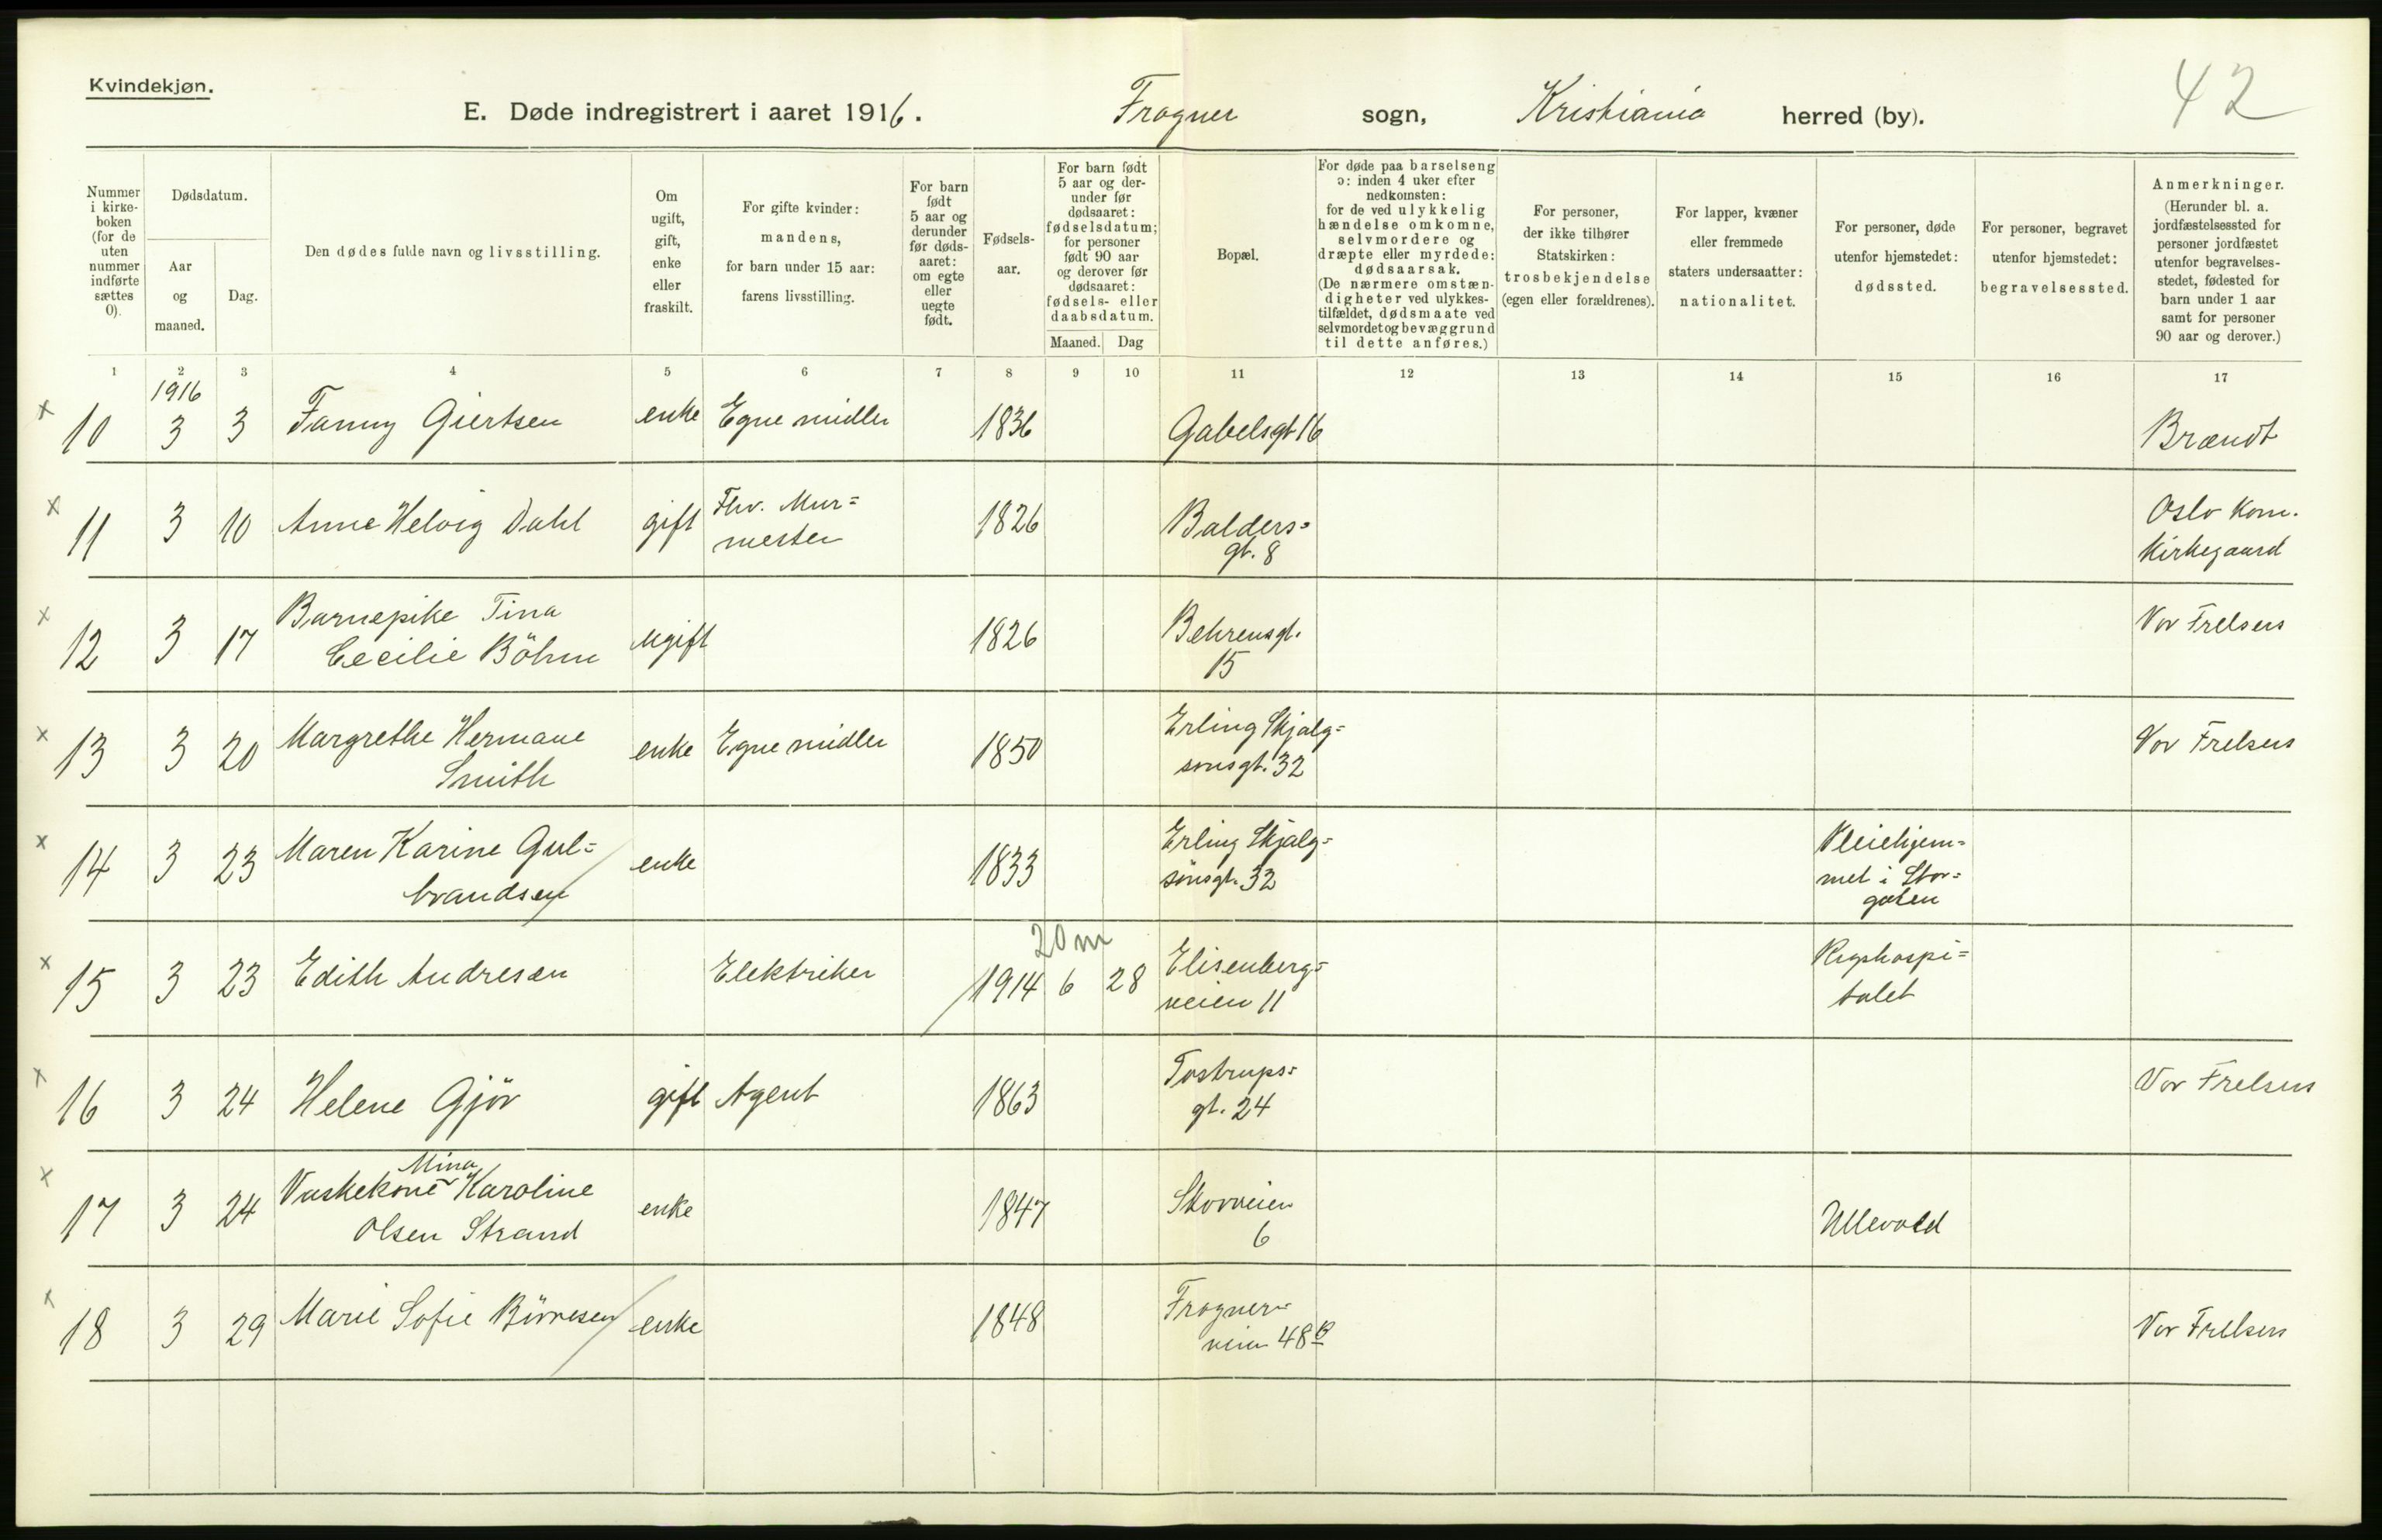 Kvindekjøn.
E. Døde indregistrert i aaret 1916. Frogner sogn, Kristiania herred (by).
42
Nummer i kirke-boken (for de uten nummer indførte sættes 0).
Dødsdatum.
Aar og maaned.
Dag.
Den dødes fulde navn og livsstilling.
Om ugift, gift, enke eller fraskilt.
For gifte kvinder: mandens, for barn under 15 aar: farens livsstilling.
For barn født 5 aar og derunder før døds-aaret: om egte eller uegte født.
Fødsels-aar.
For barn født 5 aar og der-under før dødsaaret: fødselsdatum; for personer født 90 aar og derover før dødsaaret: fødsels- eller daabsdatum.
Maaned. Dag
Bopæl.
For døde paa barselseng ɔ: inden 4 uker efter nedkomsten: for de ved ulykkelig hændelse omkomne, selvmordere og dræpte eller myrdede: dødsaarsak. (De nærmere omstæn-digheter ved ulykkes-tilfældet, dødsmaate ved selvmordet og bevæggrund til dette anføres.)
For personer, der ikke tilhører Statskirken: trosbekjendelse (egen eller forældrenes).
For lapper, kvæner eller fremmede staters undersaatter: nationalitet.
For personer, døde utenfor hjemstedet: dødssted.
For personer, begravet utenfor hjemstedet: begravelsessted.
Anmerkninger. (Herunder bl. a. jordfæstelsessted for personer jordfæstet utenfor begravelses-stedet, fødested for barn under 1 aar samt for personer 90 aar og derover.)
1 2 3 4 5 6 7 8 9 10 11 12 13 14 15 16 17
1916
x 10 3 3 Fanny Giertsen enke Egne midler 1836 Gabelsgt 16 Brændt
x 11 3 10 Anne Helvig Dahl gift Fhv. Mur=
mester 1826 Balders=
gt. 8 Oslo Kom.
Kirkegaard
x 12 3 17 Barnepike Tina
Cecilie Böhm ugift 1826 Behrensgt.
15 Vor Frelsers
x 13 3 20 Margrethe Hermane
Smith enke Egne midler 1850 Erling Skjalg=
sonsgt. 32 Vor Frelsers
x 14 3 23 Maren Karine Gul=
brandsen enke 1833 Erling Skjalg=
sönsgt. 32 Pleiehjem=
met i Stor=
gaten
20 m
x 15 3 23 Edith Andresen Elektriker 1914 6 28 Elisenberg=
veien 11 Rigshospi=
talet
x 16 3 24 Helene Gjör gift Agent 1863 Tostrups=
gt. 24 Vor Frelsers
Mina
x 17 3 24 Vaskekone Karoline
Olsen Strand enke 1847 Skovveien
6 Ullevold
x 18 3 29 Marie Sofie Börresen enke 1848 Frogner=
veien 48 B Vor Frelsers